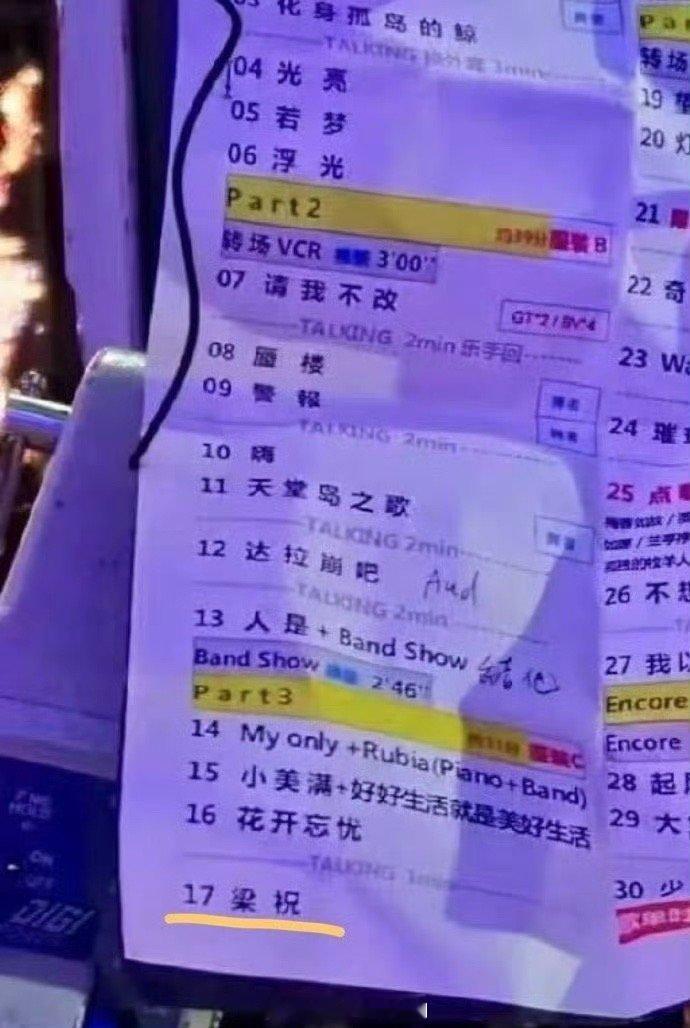 03 化身孤岛的鲸
04 光亮
05 若梦
06 浮光
Part2
服装B
转场VCR 3'00''
07 请我不改
GT*2/BV*4
TALKING 2min 乐手回
08 蜃楼
09 警报
TALKING 2min
10 嗨
11 天堂岛之歌
TALKING 2min
12 达拉崩吧
And
TALKING 2min
13 人是 + Band Show
Band Show 2'46''
Part3
服装C
14 My only +Rubia(Piano+Band)
15 小美满+好好生活就是美好生活
16 花开忘忧
TALKING 1min
17 梁祝
转场
19
20
21
22 奇
23 Wa
24 璀
25 点
26 不想
27 我以
Encore
Encore
28 起
29 大
30 少
ON
DIGI